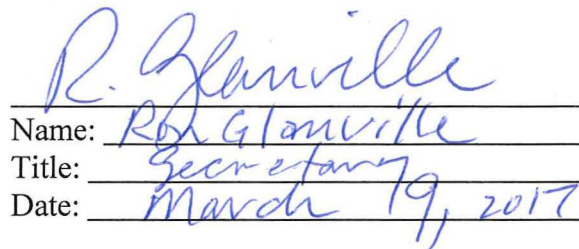 R. Glanville
Name: Ron Glanville
Title: Secretary
Date: March 19, 2017